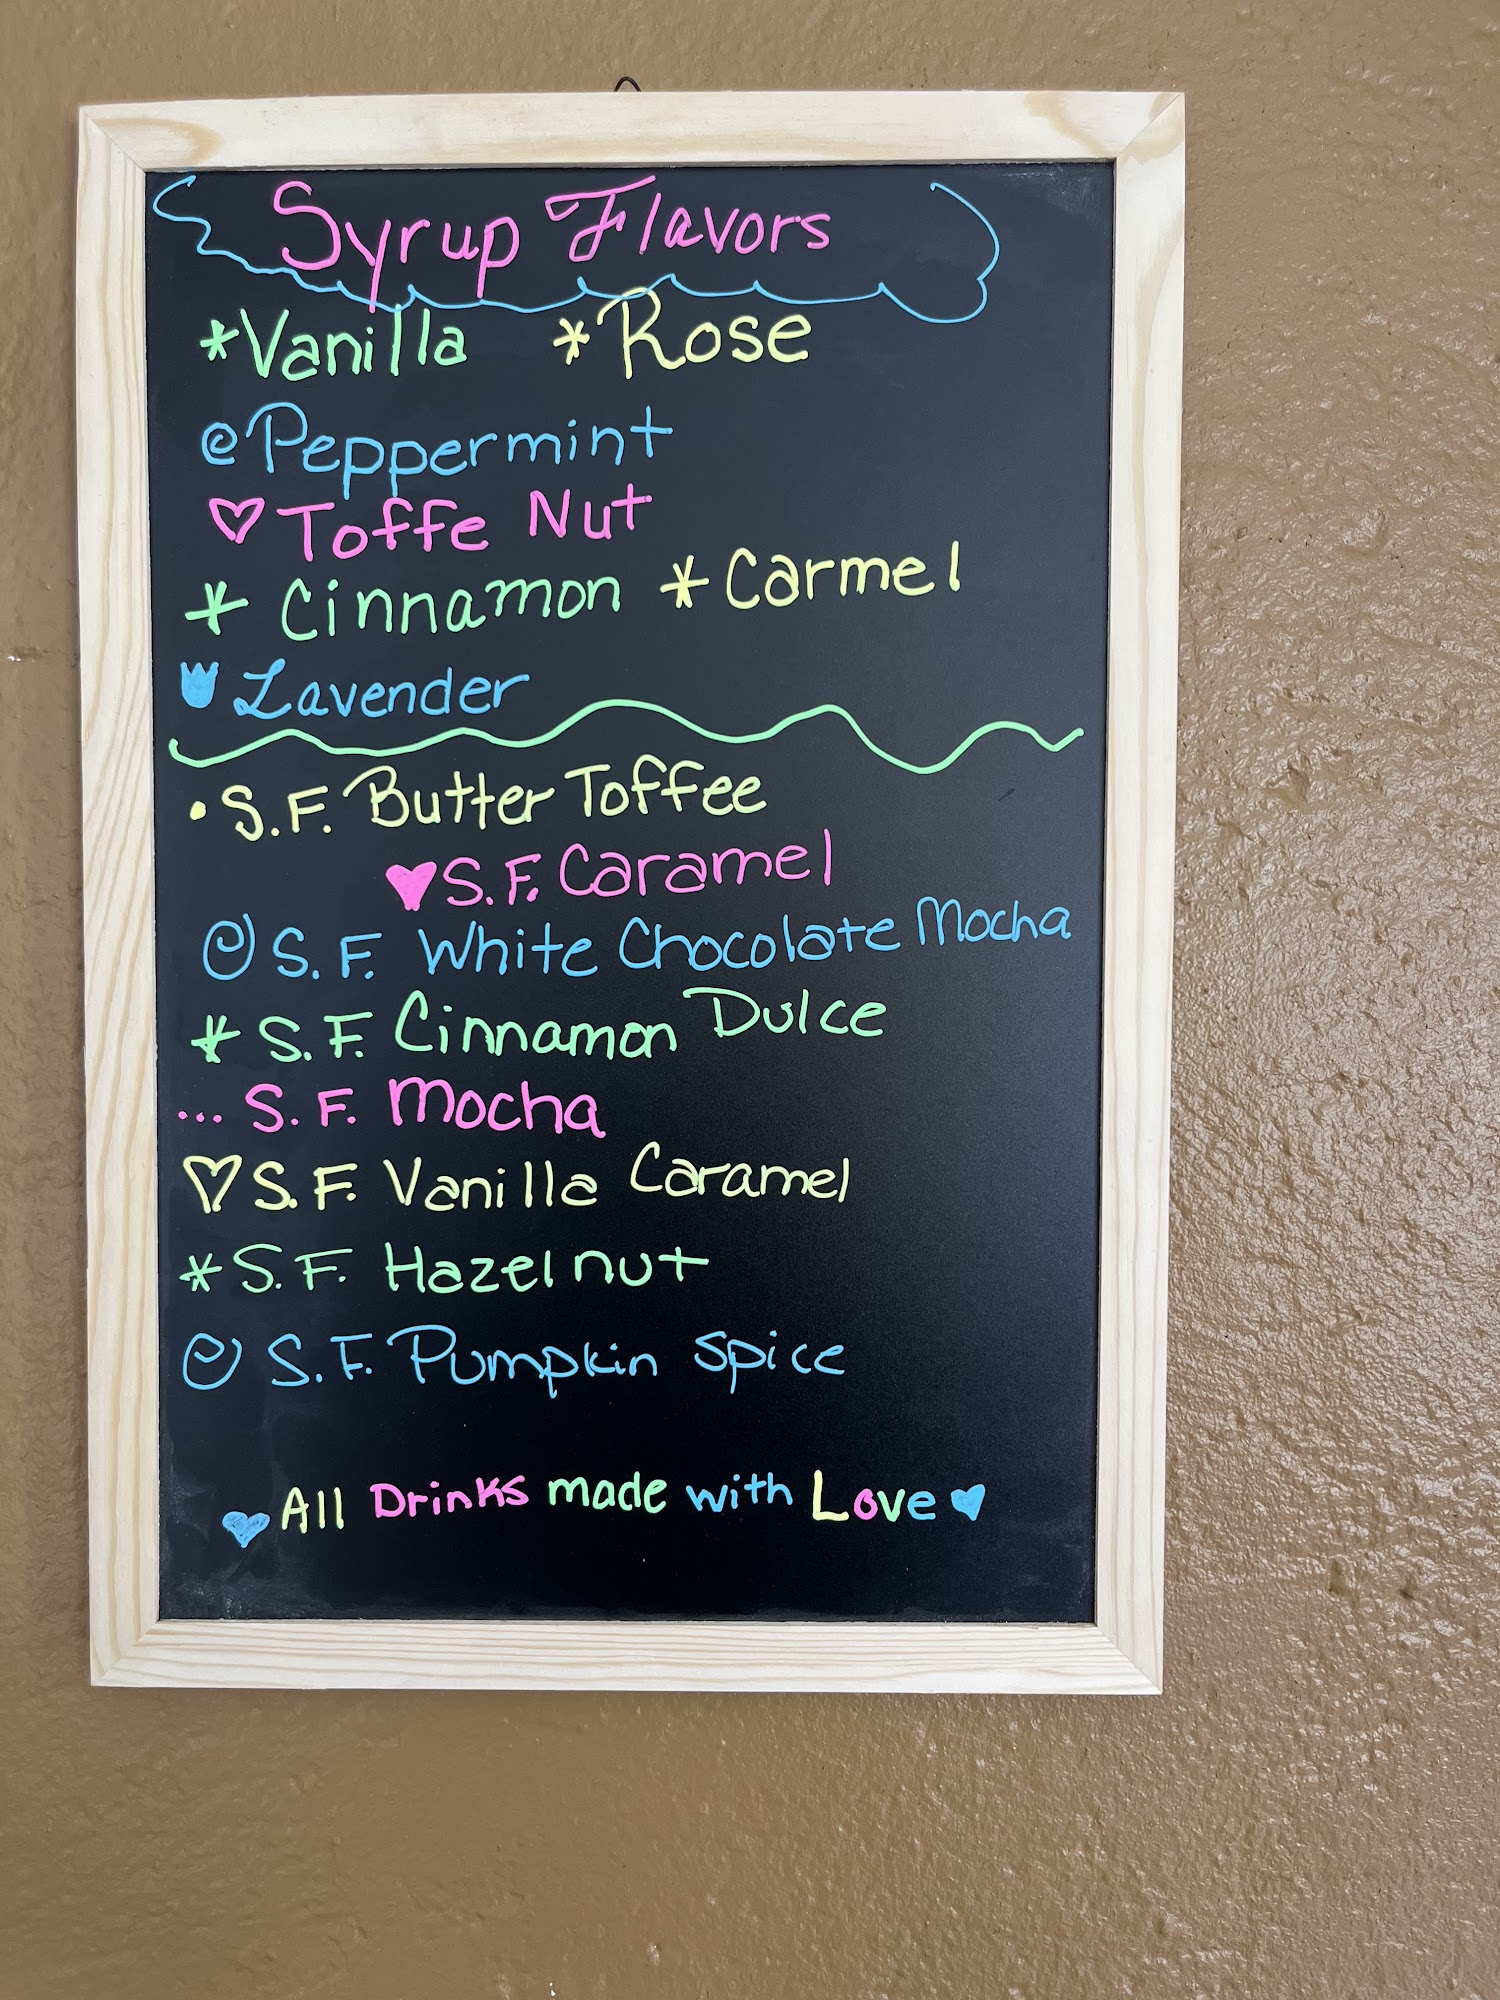 Syrup Flavors
*Vanilla *Rose
Peppermint
♡ Toffe Nut
* Cinnamon *Carmel
Lavender
• S.F. Butter Toffee
♥ S.F. Caramel
S.F. White Chocolate Mocha
* S.F. Cinnamon Dulce
... S.F. Mocha
♡ S.F. Vanilla Caramel
* S.F. Hazelnut
S.F. Pumpkin Spice
♥ All Drinks made with Love ♥